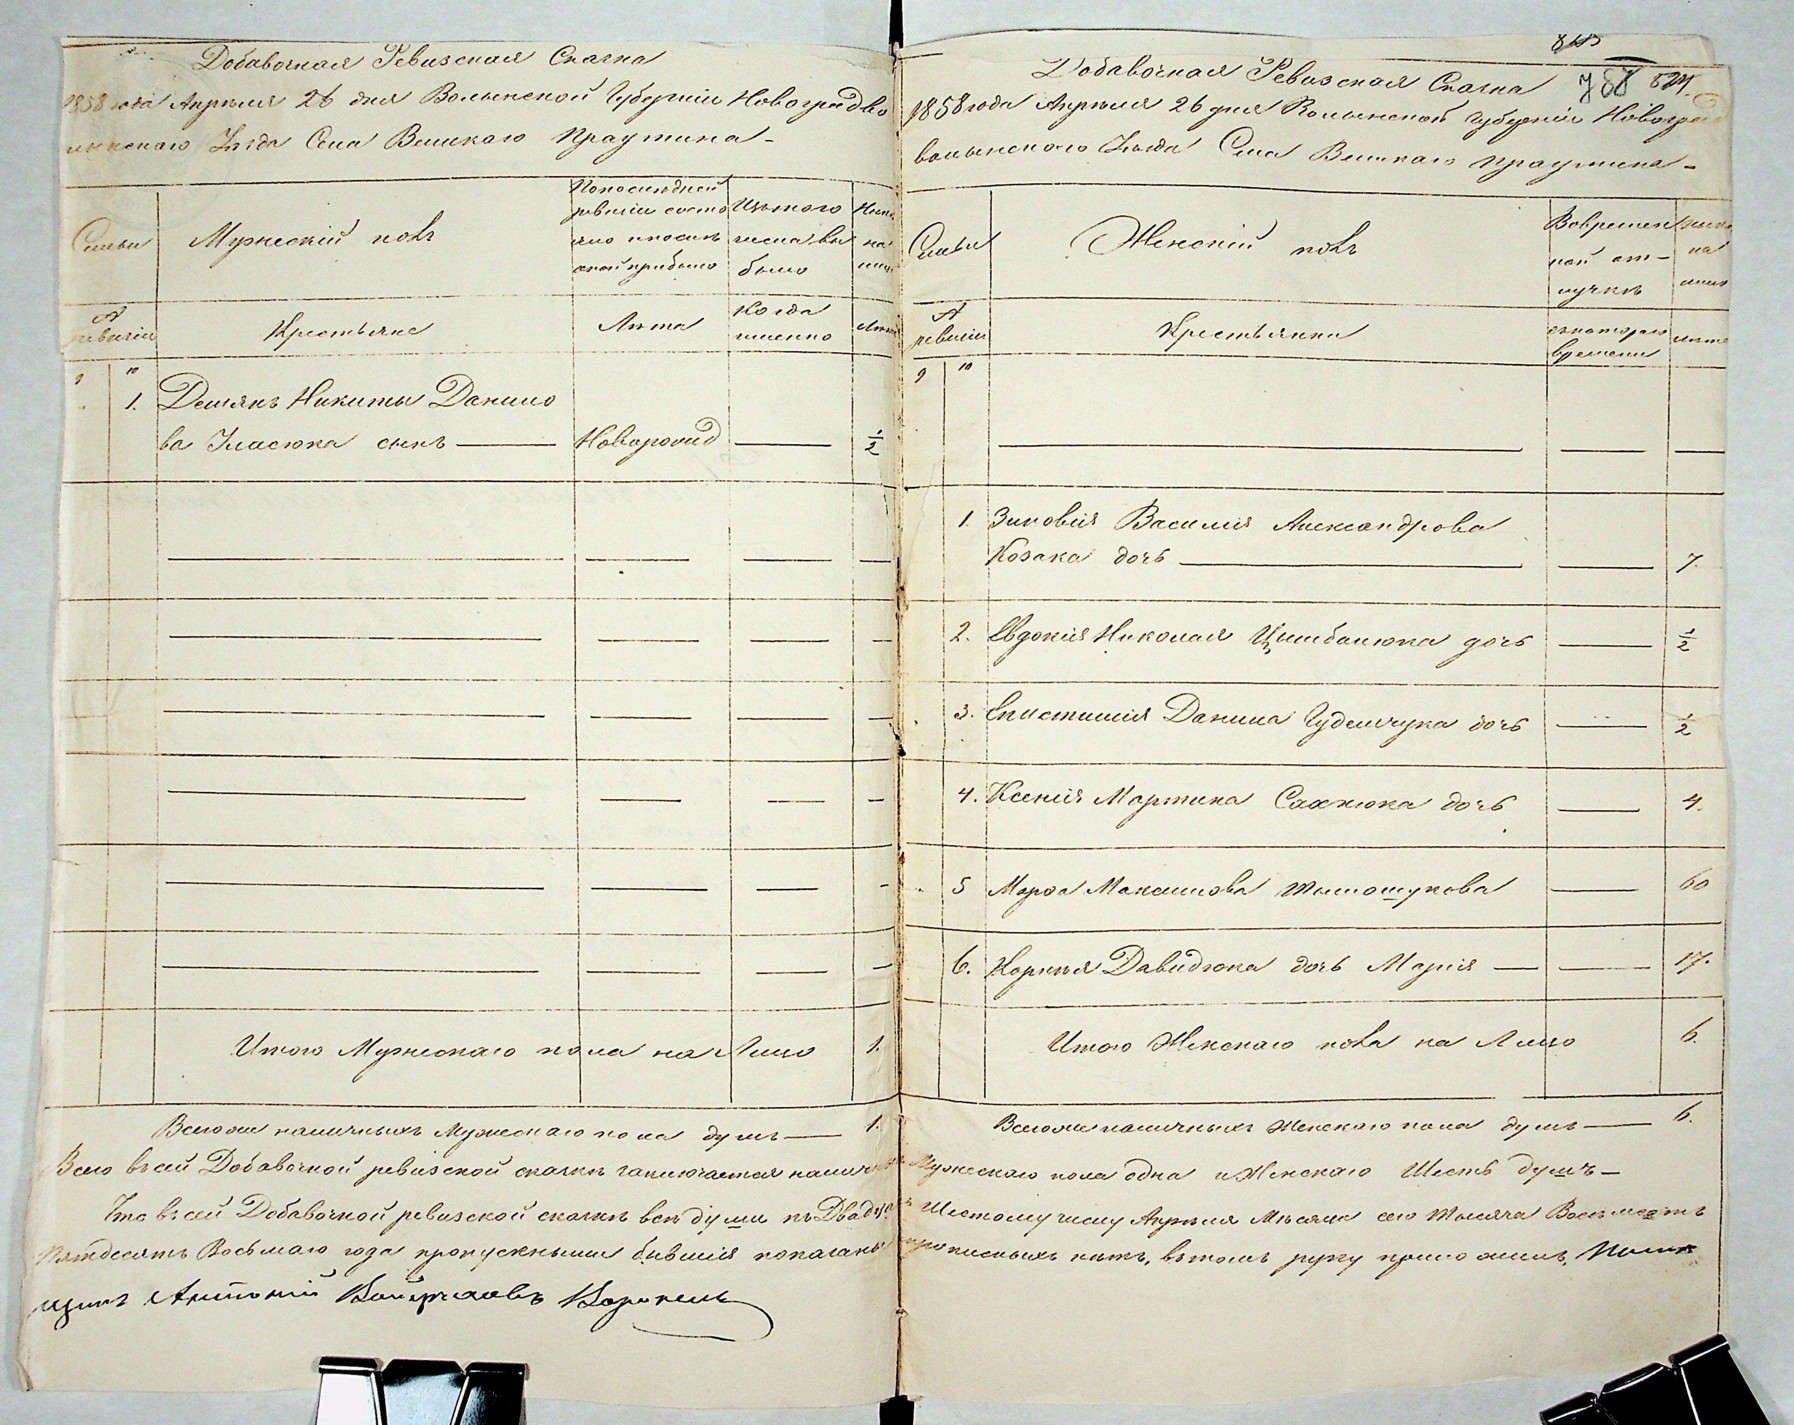 Добавочная Ревизская Сказка
1858 года Апреля 26 дня Волынской Губернии Новоградво
лынскаго Уезда Села Великаго Праутина -
Семьи
Мужескій полъ
По последней
ревизіи состо
яло и после
оной прибыло
Изъ того
числа вы
было
Ныне
на
лицо
№
ревизіи
Крестьяне
Лета
Когда
именно
Лета
9 10
1. Демянъ Никиты Данило
ва Сынъ Новорожд 1/2
Итого Мужескаго пола на Лицо 1.
Всего же наличныхъ Мужескаго пола душъ 1.
Всего въ сей Добавочной ревизской сказке заключается налич
Что въ сей Добавочной ревизской сказке все души къ Двадца
Пятдесятъ Восьмаго года пропускными бывшія показаны
Антоній
845
788 824.
Добавочная Ревизская Сказка
1858 года Апреля 26 дня Волынской Губерніи Новоград
волынскаго Уезда Села Великаго Праутина -
Семьи
Женскій полъ
Во времен
ной от-
лучке
Ныне
на
лицо
№
ревизіи
Крестьянки
съ котораго
времени
Лета
9 10
1. Зиновія Василія Александрова
Козака дочь 7.
2. Евдокія Николая Цимбалюка дочь 1/2
3. Епистимія Данила Гудемчука дочь 1/2
4. Ксенія Мартина Сахнюка дочь 4.
5 Марфа Максимова 60
6. Корнея Давидюка дочь Марія 17.
Итого Женскаго пола на Лицо 6.
Всего же наличныхъ Женскаго пола душъ 6.
Мужескаго пола одна и Женскаго Шесть душъ -
Шестому числу Апреля Месяца сего тысяча Восемьсотъ
прописныхъ нетъ, въ томъ руку приложилъ,